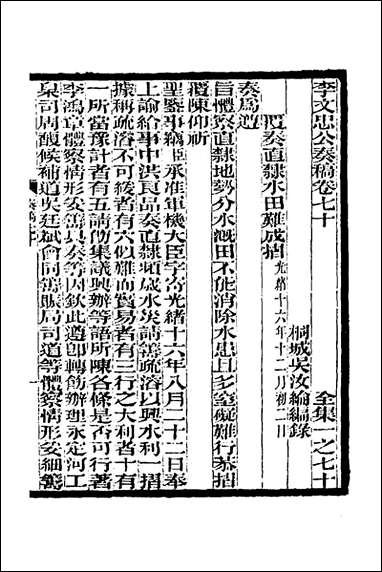 李文忠公奏稿卷七十
全集一之七十
桐城吳汝綸編錄
覆奏直隸水田難成摺 光緒十六年十二月初二日
奏爲遵
旨體察直隸地勢分水漑田不能消除水患且多窒礙難行恭摺
覆陳仰祈
聖鑒事竊臣承准軍機大臣字寄光緒十六年八月二十二日奉
上諭給事中洪良品奏直隸頻歲水災請籌疏濬以興水利一摺
據稱疏濬不可緩者有六似難而實易者有三行之大利者十有
一所當豫計者有五請飭集議興辦等語所陳各條是否可行著
李鴻章體察情形妥籌具奏等因欽此遵卽轉飭辦理永定河工
臬司周馥候補道吳廷斌會同籌賑局司道等體察情形妥細籌